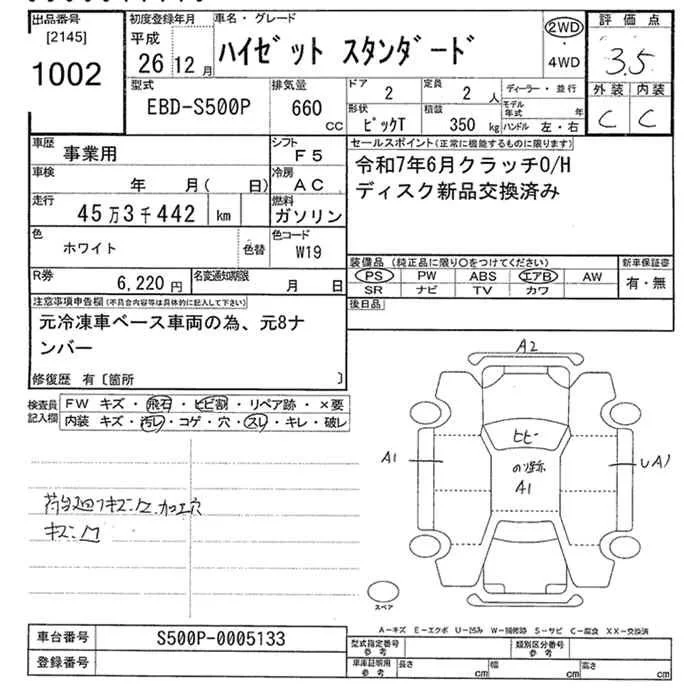 出品番号
[2145]
1002
初度登録年月
平成
26 12月
車名・グレード
ハイゼット スタンダード
2WD
・
4WD
評価点
3.5
外装 内装
C C
型式
EBD-S500P
排気量
660
CC
ドア
2
定員
2 人
形状
ピックT
積載
350 kg
ディーラー・並行
モデル年式 年
ハンドル 左・右
車歴
事業用
シフト
F5
車検
年 月( 日)
冷房
AC
走行
45万3千442 km
燃料
ガソリン
色
ホワイト
色替
色コード
W19
R券
6,220円
名変通知期限
月 日
セールスポイント(正常に機能するものに限ります)
令和7年6月クラッチO/H
ディスク新品交換済み
装備品(純正品に限り○をつけてください)
PS PW ABS エアB AW
SR ナビ TV カワ
新車保証書
有・無
後日品
注意事項申告欄(不具合内容等は具体的に記入して下さい)
元冷凍車ベース車両の為、元8ナ
ンバー
修復歴 有〔箇所 〕
検査員
記入欄
FW キズ・飛石・ヒビ割・リペア跡・×要
内装 キズ・汚レ・コゲ・穴・スレ・キレ・破レ
加工穴
A2
A1
ヒビー
の跡
A1
UA1
スペア
A-キズ E-エクボ U-凹み W-補修跡 S-サビ C-腐食 XX-交換済
車台番号
S500P-0005133
登録番号
型式指定番号
参考
類別区分番号
参考
車庫証明用
参考
長さ cm
幅 cm
高さ cm